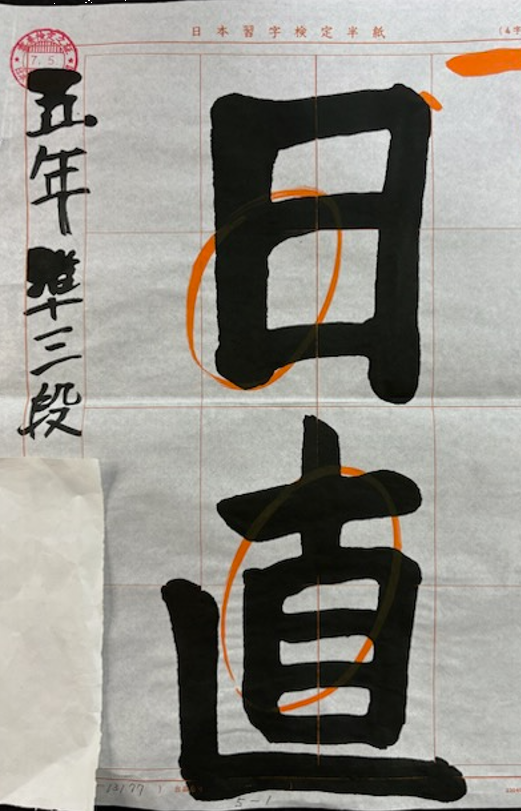 日本習字検定半紙
7.5.
日直
五年準三段
5-1